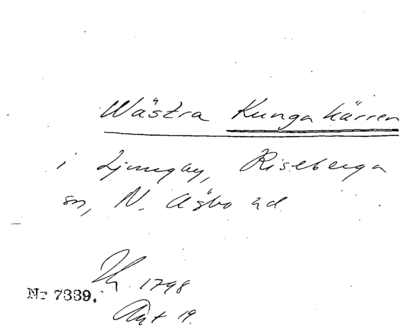 Wästra Kungakärren
i Ljungby, Riseberga
sn, N. Åsbo hd.
1798
Nr 7339.
Akt 19.